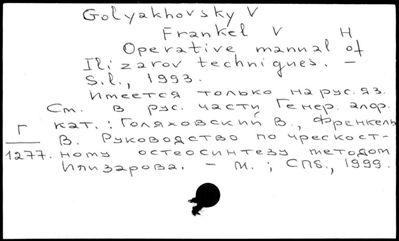 Golyakhovsky V
Frankel V H
Operative manual of
Ilizarov techniques. –
S.l., 1993.
Имеется только на рус.яз.
См. в рус. части Генер. алф.
Г кат.: Голяховский В., Френкель
В. Руководство по чрескост-
1277. ному остеосинтезу методом
Илизарова. – М.; СПб., 1999.